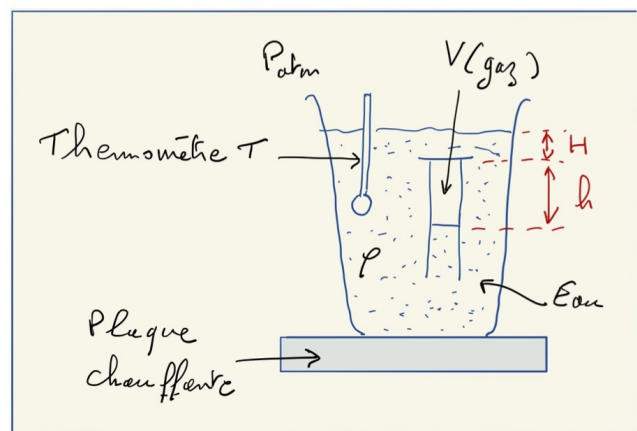 Patm
V(gaz)
Thermomètre T
H
h
ρ
Eau
Plaque
chauffante